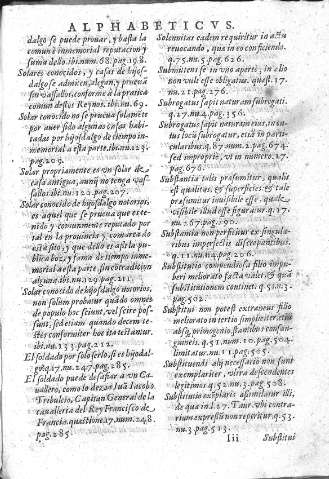 ALPHABETICVS.
dalgo se puede prouar, y basta la
comun è inmemorial reputacion y
fama dello. ibi. num. 68. pag. 198.
Solares conocidos, y casas de hijos-
dalgo se admiten, alegan, y prueuā
en vasallos, conforme à la pratica
comun destos Reynos. ibi. nu. 69.
Solar conocido no se prueua solamēte
por auer sido alguno casas habi-
tadas por hijosdalgo de tiempo in-
memorial a esta parte. ibi. nu. 123.
pag. 209.
Solar propriamente es vn solar de
casa antigua, aunq̃ no tenga vas-
sallos. ibi. nu. 120. pag. 207.
Solar conocido de hijosdalgo notorios,
es aquel que se prueua que este-
nido y comunmente reputado por
tal en la prouincia y comarca do
està sito, y que dello es assi la pu-
blica boz, y fama de tiempo inme-
morial a esta parte sin cōtradicion
alguna. ibi. nu. 129. pag. 211.
Solar conocido de hijosdalgo notorios,
non solum probatur quādo omnes
de populo hoc sciunt, vel scire pos-
sunt, sed etiam quando decem te-
stes conformiter hoc ita testantur.
ibi. nu. 133. pag. 212.
El soldado por solo serlo, si es hijodal-
go. q. 17. nu. 247. pag. 285.
El soldado puede desafiar a vn Ca-
uallero, como lo dezia Juā Iacobo
Trebulcio, Capitan General de la
caualleria del Rey Francisco de
Francia. quæstione 17. num. 248.
pag. 285.
Solennitas eadem requiritur in actu
reuocando, qua in eo conficiendo.
q. 75. nu. 5. pag. 626.
Submittens se in vno aperte, in alio
non vult esse obligatus. quæst. 17.
nu. 21. pag. 276.
Subrogatus sapit naturam subrogati.
q. 17. nu. 4. pag. 356.
Subrogatus sapit naturam eius, in cu-
ius locū subrogatur, etiā in parti-
cularibus. q. 87. num. 2. pag. 674.
sed impropriè, vt in numero. 17.
pag. 676.
Substantia talis præsumitur, quale
est qualitas, & superficies: & tale
præsumitur inuisibile esse, quale
visibile illud esse figuratur. q. 17.
nu. 267. pag. 290.
Substantia non perficitur ex singula-
ribus imperfectis & discrepantibus.
q. 11. nu. 114. pag. 206.
Substitutio compendiosa filio im-
puberi meliorato facta valet, & quā
substitutionem continet. q. 51. nu. 3.
pag. 502.
Substitui non potest extraneus filio
meliorato in tertio simpliciter, etiā
absq; primogenio, stantibus consan-
guineis. q. 51. num. 10. pag. 504.
limitatur. nu. 11. pag. 505.
Substituendi alij necessariò non sunt
exemplariter, vltra descendentes
legitimos. q. 52. nu. 3. pag. 508.
Substitutio exēplaris assimilatur illi,
de qua in l. 27. Taur. vbi contra-
rium expressum non reperitur. q. 53.
nu. 3. pag. 513.
Iii Substitui